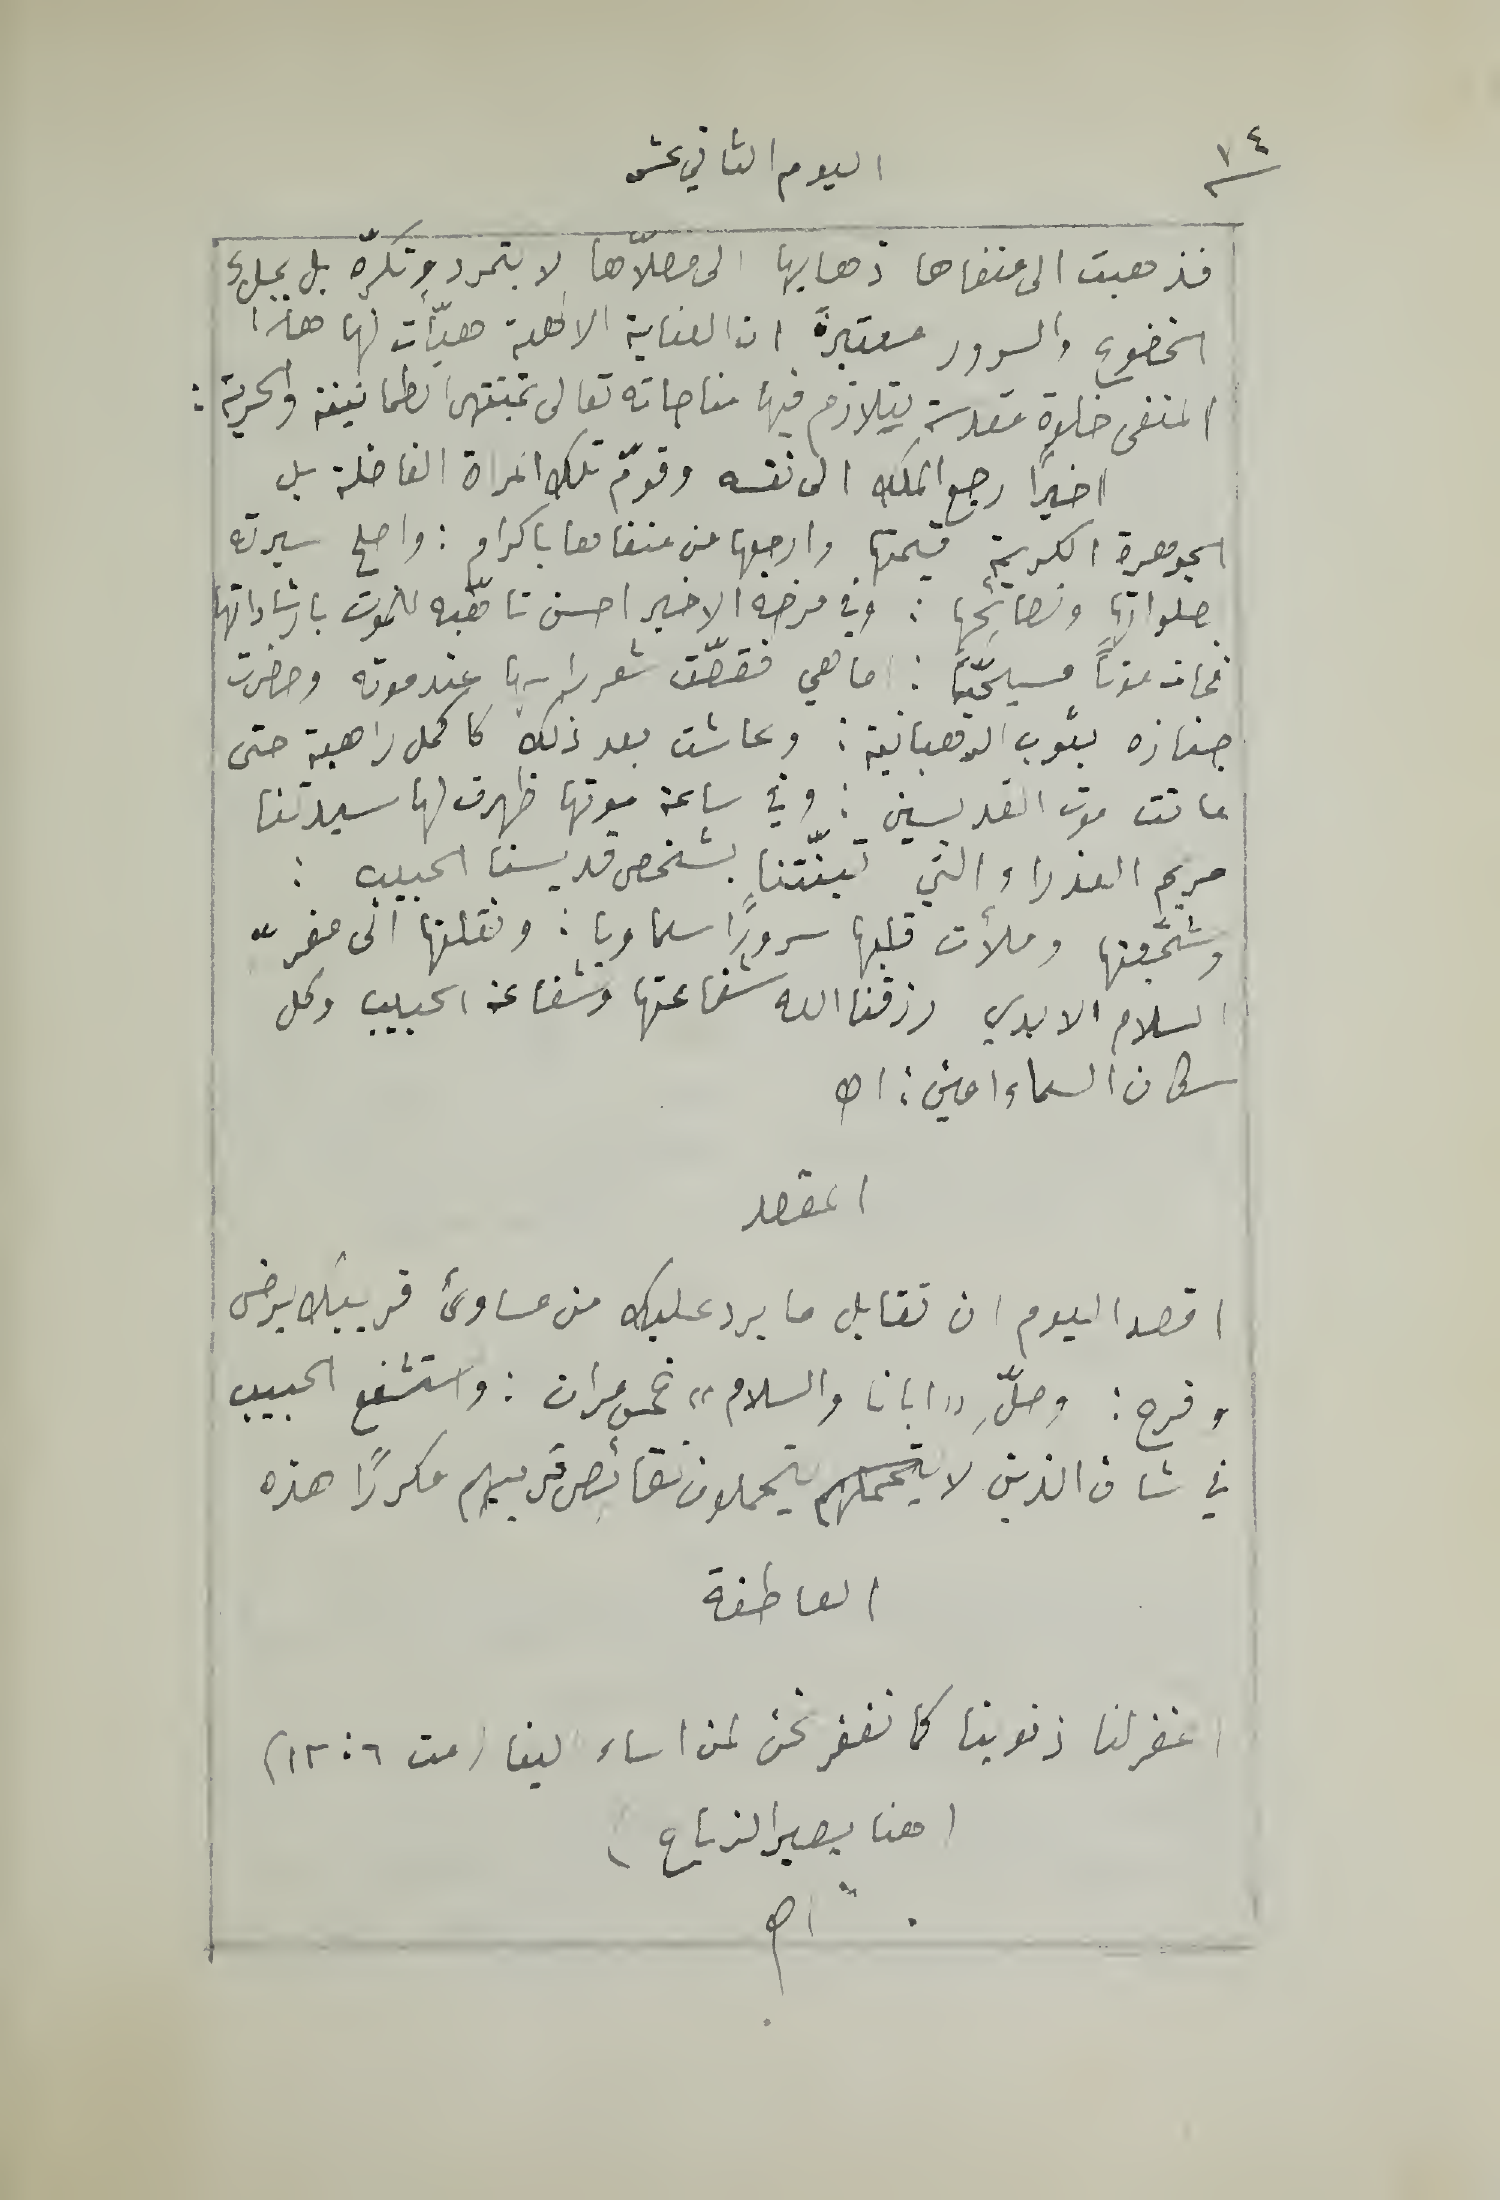 ٧٤
اليوم الثاني عشر
فذهبت الى منفاها ذهابها الى مصلّاها لا بتمرد وتكرّه بل بملء
الخضوع والسرور معتبرةً ان العناية الالهية هيّأت لها هذا
المنفى خلوة مقدسة يتلازم فيها مناجاته تعالى بمنتهى الطمانينة والحرية :
اخيرًا رجع الملك الى نفسه وقوّم تلك المراة الفاضلة بل
الجوهرة الكريمة قيمتها وارجعها من منفاها باكرام : واصلح سيرته
بصلواتها ونصائحها : وفي مرضه الاخير احسن تاهّبه للموت بارشاداتها
فمات موتاً مسيحيّاً : اما هي فقصّت شعر راسها عند موته وحضرت
جنازه بثوب الرهبانية : وعاشت بعد ذلك كاكمل راهبة حتى
ماتت موت القديسين : وفي ساعة موتها ظهرت لها سيدتنا
مريم العذراء التي تبنّتنا بشخص قديسنا الحبيب :
وشجّعتها وملأت قلبها سرورًا سماويا : ونقلتها الى مقرّ
السلام الابدي رزقنا الله شفاعتها وشفاعة الحبيب وكل
سكان السماء امين : اه
المقصد
اقصد اليوم ان تقابل ما يرد عليك من مساوئ قريبك برضى
وفرح : وصلِّ «ابانا والسلام» خمس مرات : واستشفع الحبيب
في شان الذين لا يتحملهم يتحملون نقائص قريبهم مكررًا هذه
العاطفة
اغفر لنا ذنوبنا كما نغفر نحن لمن اساء الينا (مت ٦ : ١٢)
(هنا يصير الزياح)
اه